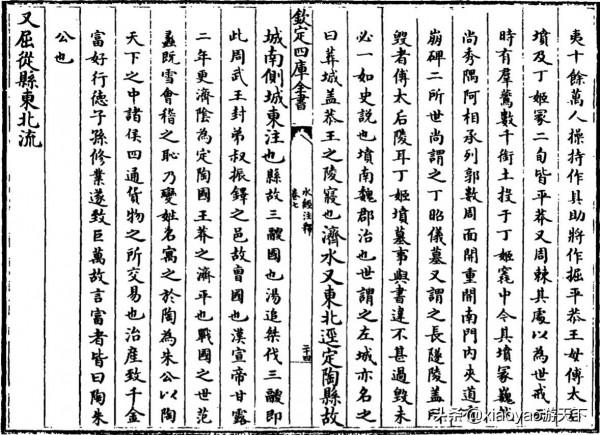 夷十餘萬人操持作具助將作掘平恭王母傅太
墳及丁姬冢二旬皆平莽又周棘其處以為世戒
時有群鷰數千銜土投于丁姬竁中今其墳冢巍
尚秀隅阿相承列郭數周面開重開南門內夾道
崩碑二所世尚謂之丁昭儀墓又謂之長隧陵蓋所
毀者傅太后陵耳丁姬墳墓事與書違不甚過毀未
必一如史說也墳南魏郡治也世謂之左城亦名之
曰葬城蓋恭王之陵寢也濟水又東北逕定陶縣故
欽定四庫全書
水經注釋
卷七
二十四
城南側城東注也縣故三鬷國也湯追桀伐三鬷即
此周武王封弟叔振鐸之邑故曹國也漢宣帝甘露
二年更濟陰為定陶國王莽之濟平也戰國之世范
蠡既雪會稽之恥乃變姓名寓之於陶為朱公以陶
天下之中諸侯四通貨物之所交易也治產致千金
富好行德子孫修業遂致巨萬故言富者皆曰陶朱
公也
又屈從縣東北流
头条 @xiaoyao游天下